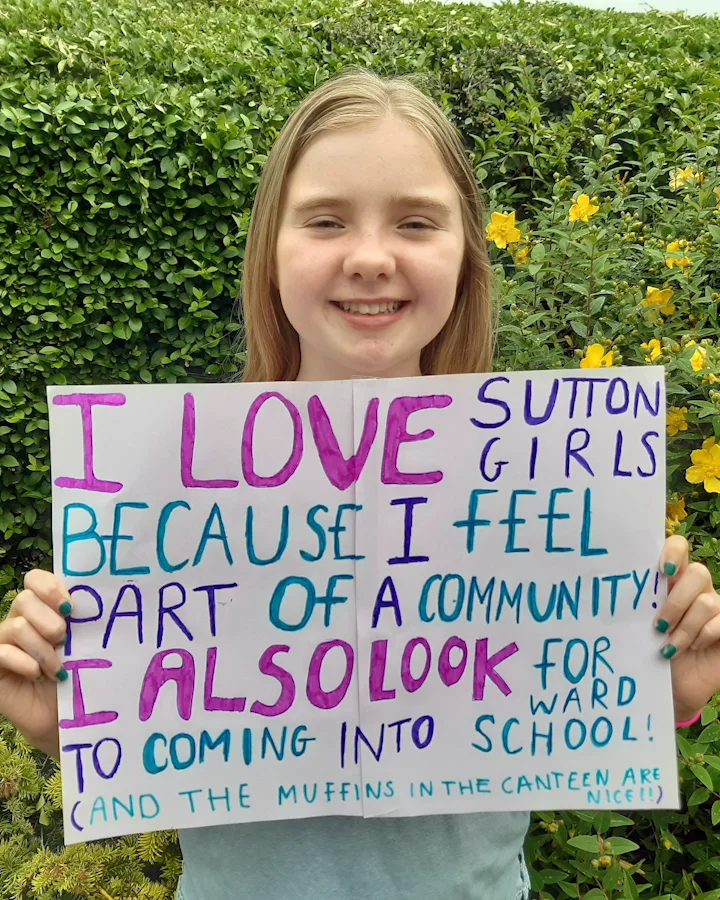 I LOVE SUTTON
GIRLS
BECAUSE I FEEL
PART OF A COMMUNITY!
I ALSO LOOK FOR
WARD
TO COMING INTO SCHOOL!
(AND THE MUFFINS IN THE CANTEEN ARE
NICE!!)